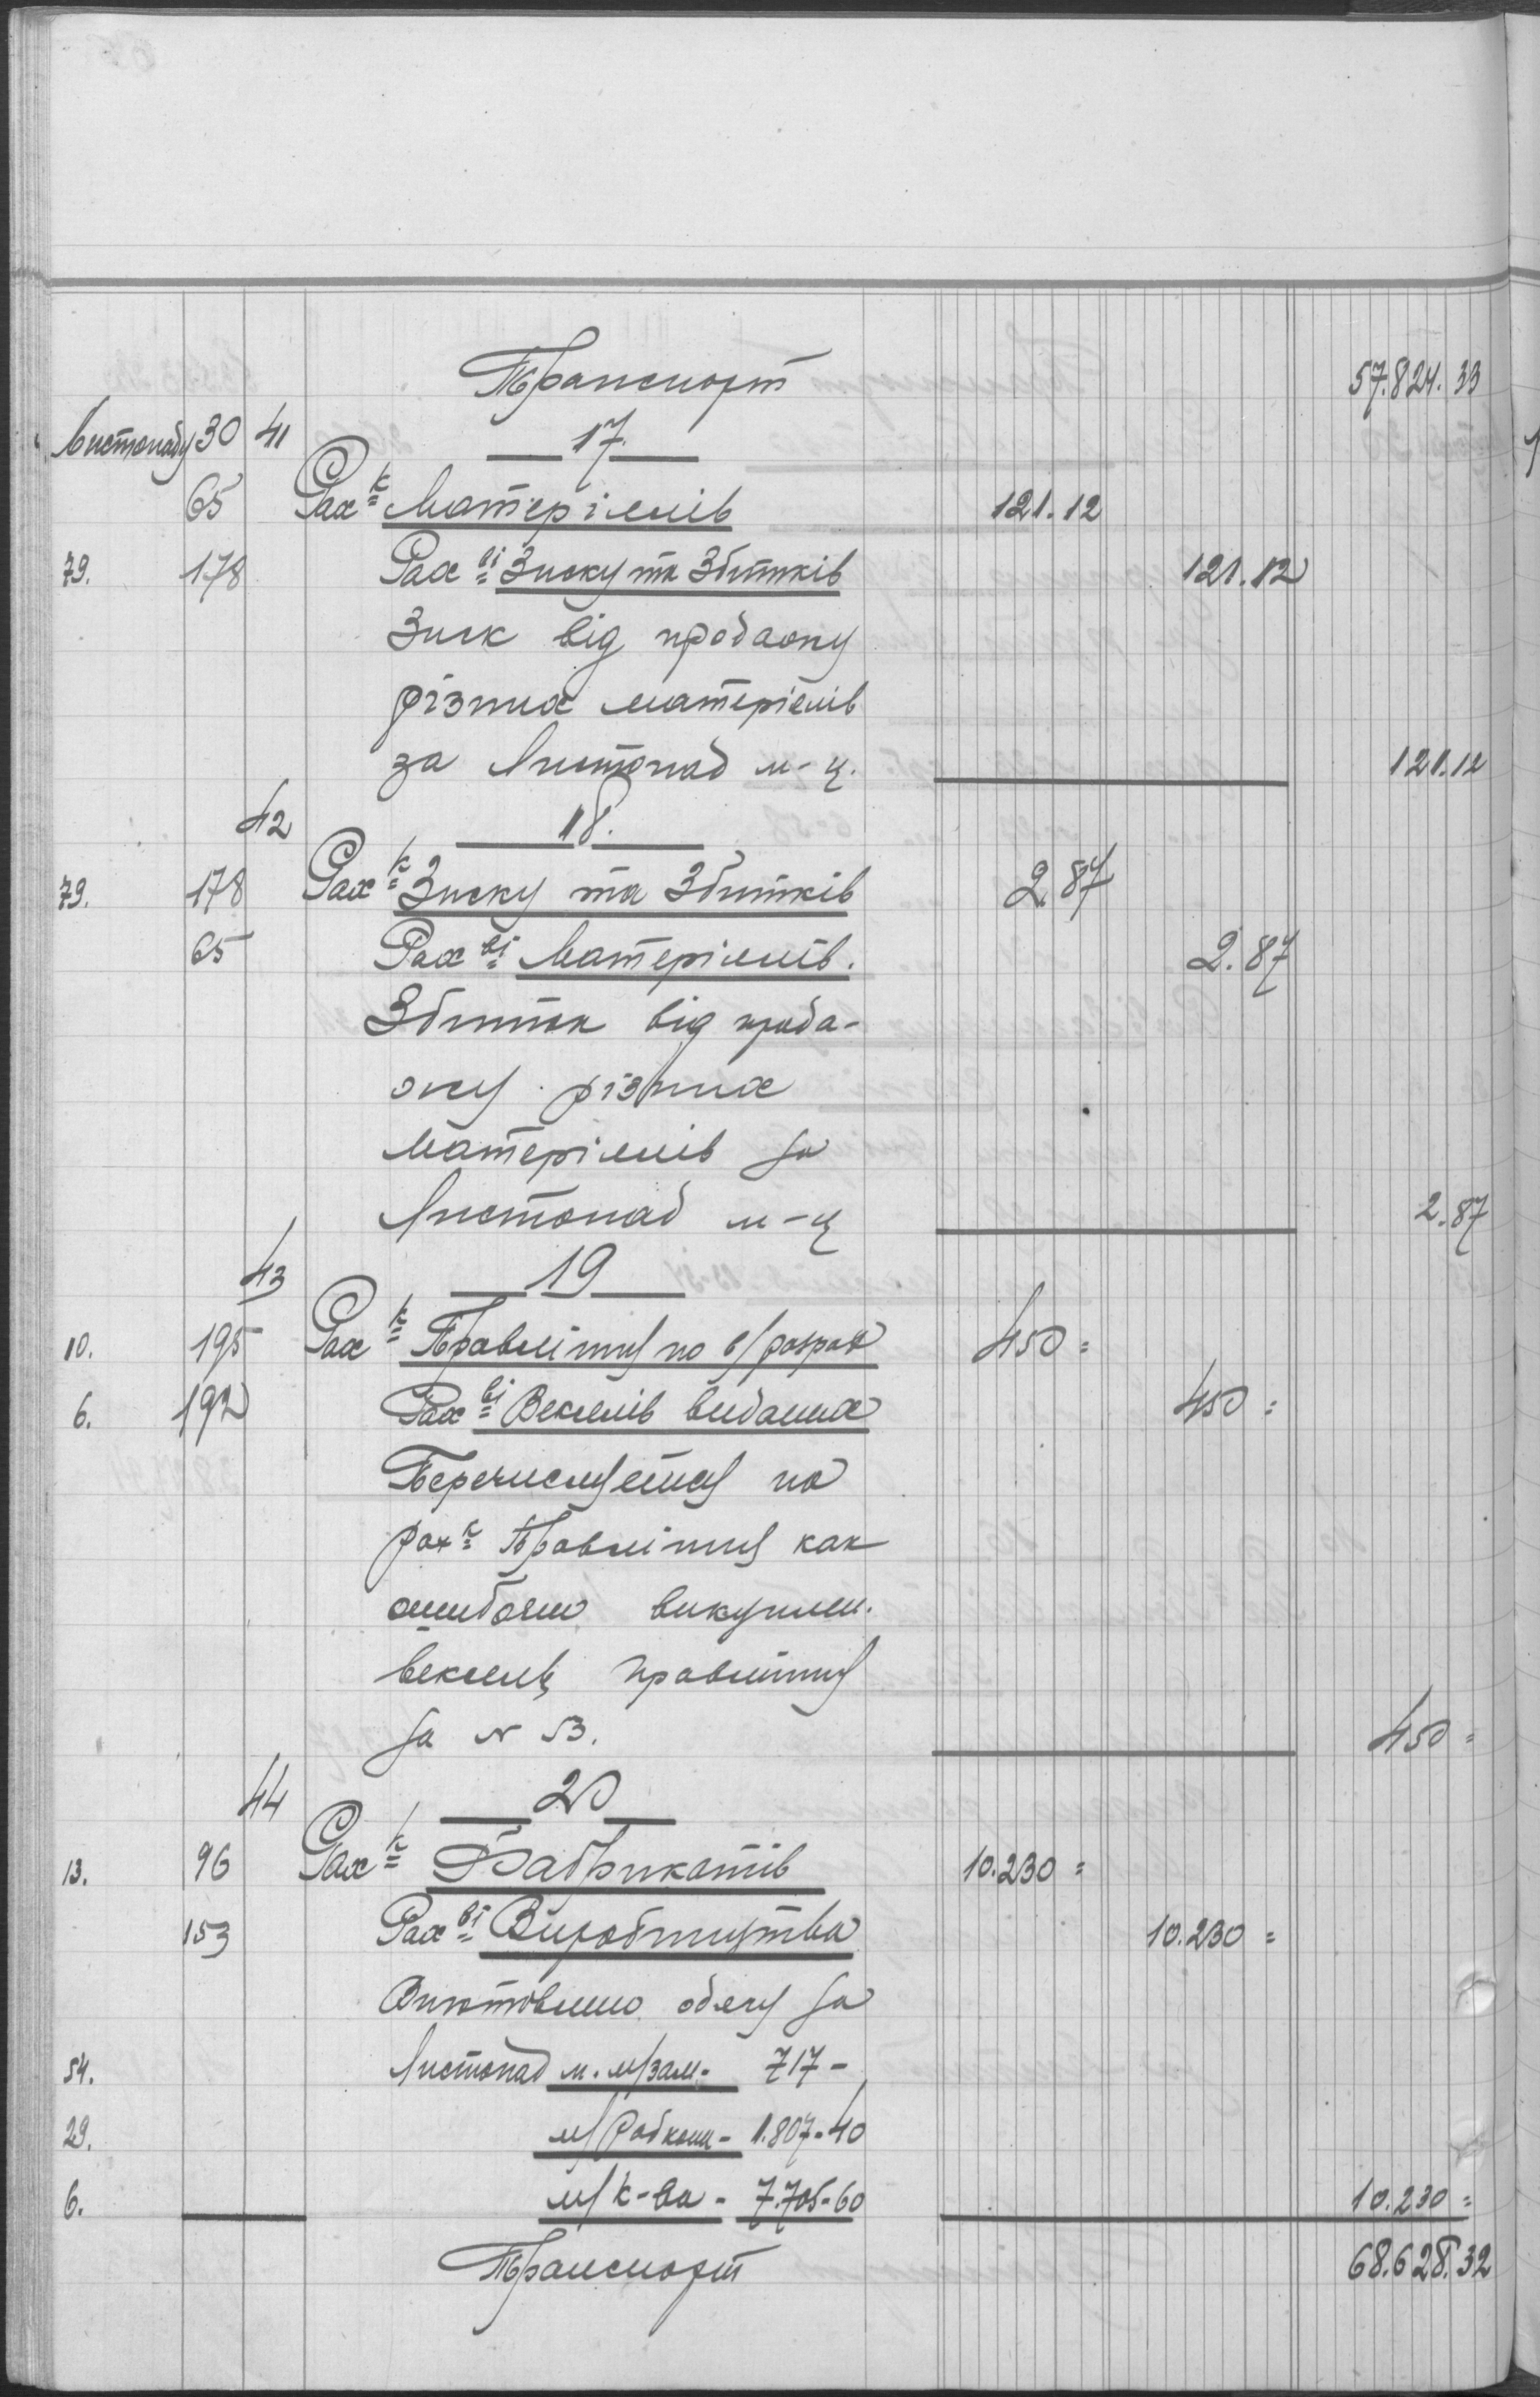 Транспорт 57.824.33
Листопаду 30 41 17.
65 Рах-к Матеріялів 121.12
79. 178 Рах-ві Зиску та Збитків 121.12
Зиск від продажу
різних матеріялів
за Листопад м-ц. 121.12
42 18.
79. 178 Рах-к Зиску та Збитків 2 87
65 Рах-ві Матеріялів. 2.87
Збиток від прода-
жу різних
матеріялів за
Листопад м-ц 2.87
43 19
10. 195 Рах-к Правлінню по в/разрах 450=
6. 192 Рах-ві Векселів виданих 450=
Перечислуєтся на
рах-к Правлінню как
ошибочно викуплен.
вексель правлінню
за N 53. 450=
44 20
13. 96 Рах-к Фабрикатів 10.230=
153 Рах-ві Виробництва 10.230=
Виготовлено одягу за
54. Листопад м. м/зам- 717-
29. м/Робкоп- 1.807-40
6. м/к-ва- 7.705-60 10.230=
Транспорт 68.628.32